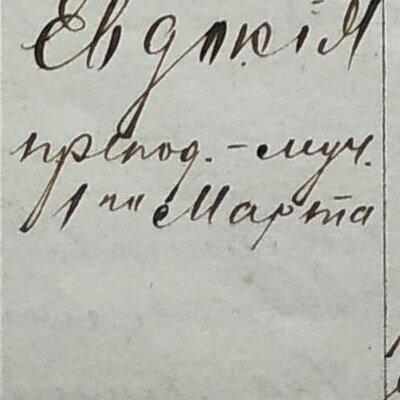 Евдокія
препод.-муч.
1го Марта